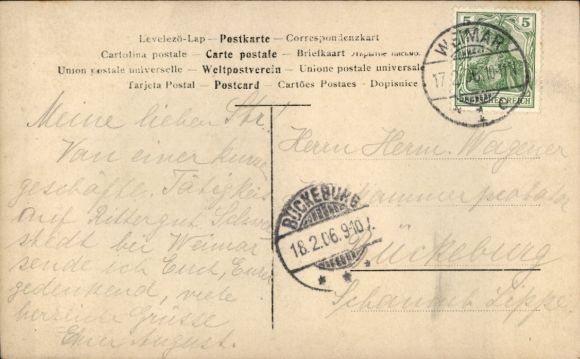 Levelező-Lap — Postkarte — Correspondenzkart
Cartolina postale — Carte postale — Briefkaart
Union postale universelle — Weltpostverein — Unione postale universale
Tarjeta Postal — Postcard — Cartões Postaes - Dopisnice
5 5
WEIMAR
17.
DEUTSCHES REICH
1
BÜCKEBURG
18.2.06.9-10
Meine lieben
Von einer kurzen
geschäftl. Tätigkeit
Rittergut
stadt bei Weimar
sende ich Euch, Eurer
gedenkend, viele
herzliche Grüsse
Euer August.
Herrn Herm. Wagener
Bückeburg
Schaumb. Lippe.